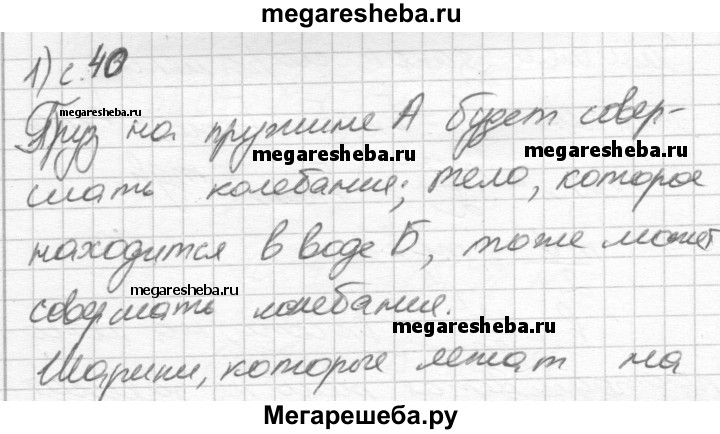 megaresheba.ru
1) с. 40
megaresheba.ru
Груз на пружине А будет совер-
megaresheba.ru megaresheba.ru
шать колебания; тело, которое
находится в воде Б, тоже может
megaresheba.ru
совершать колебания.
megaresheba.ru
Шарики, которые лежат на
Мегарешеба.ру